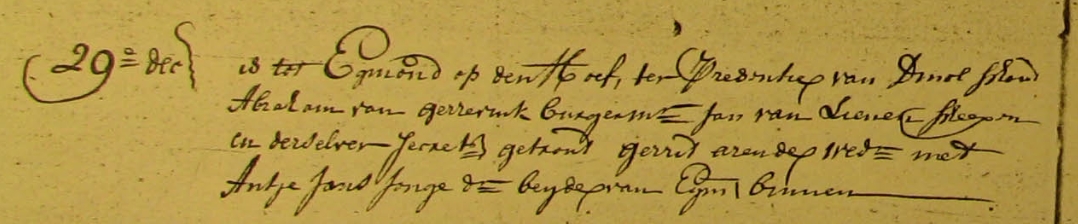 29e dec is tot Egmond op den Hoef, ter Presentie van
Abraham van gerrevink burgermr Jan van Lienen
en derselver Secrets getrout gerrit arendsz wedr met
Antje Jans Jonge dr beyde van Egm binnen